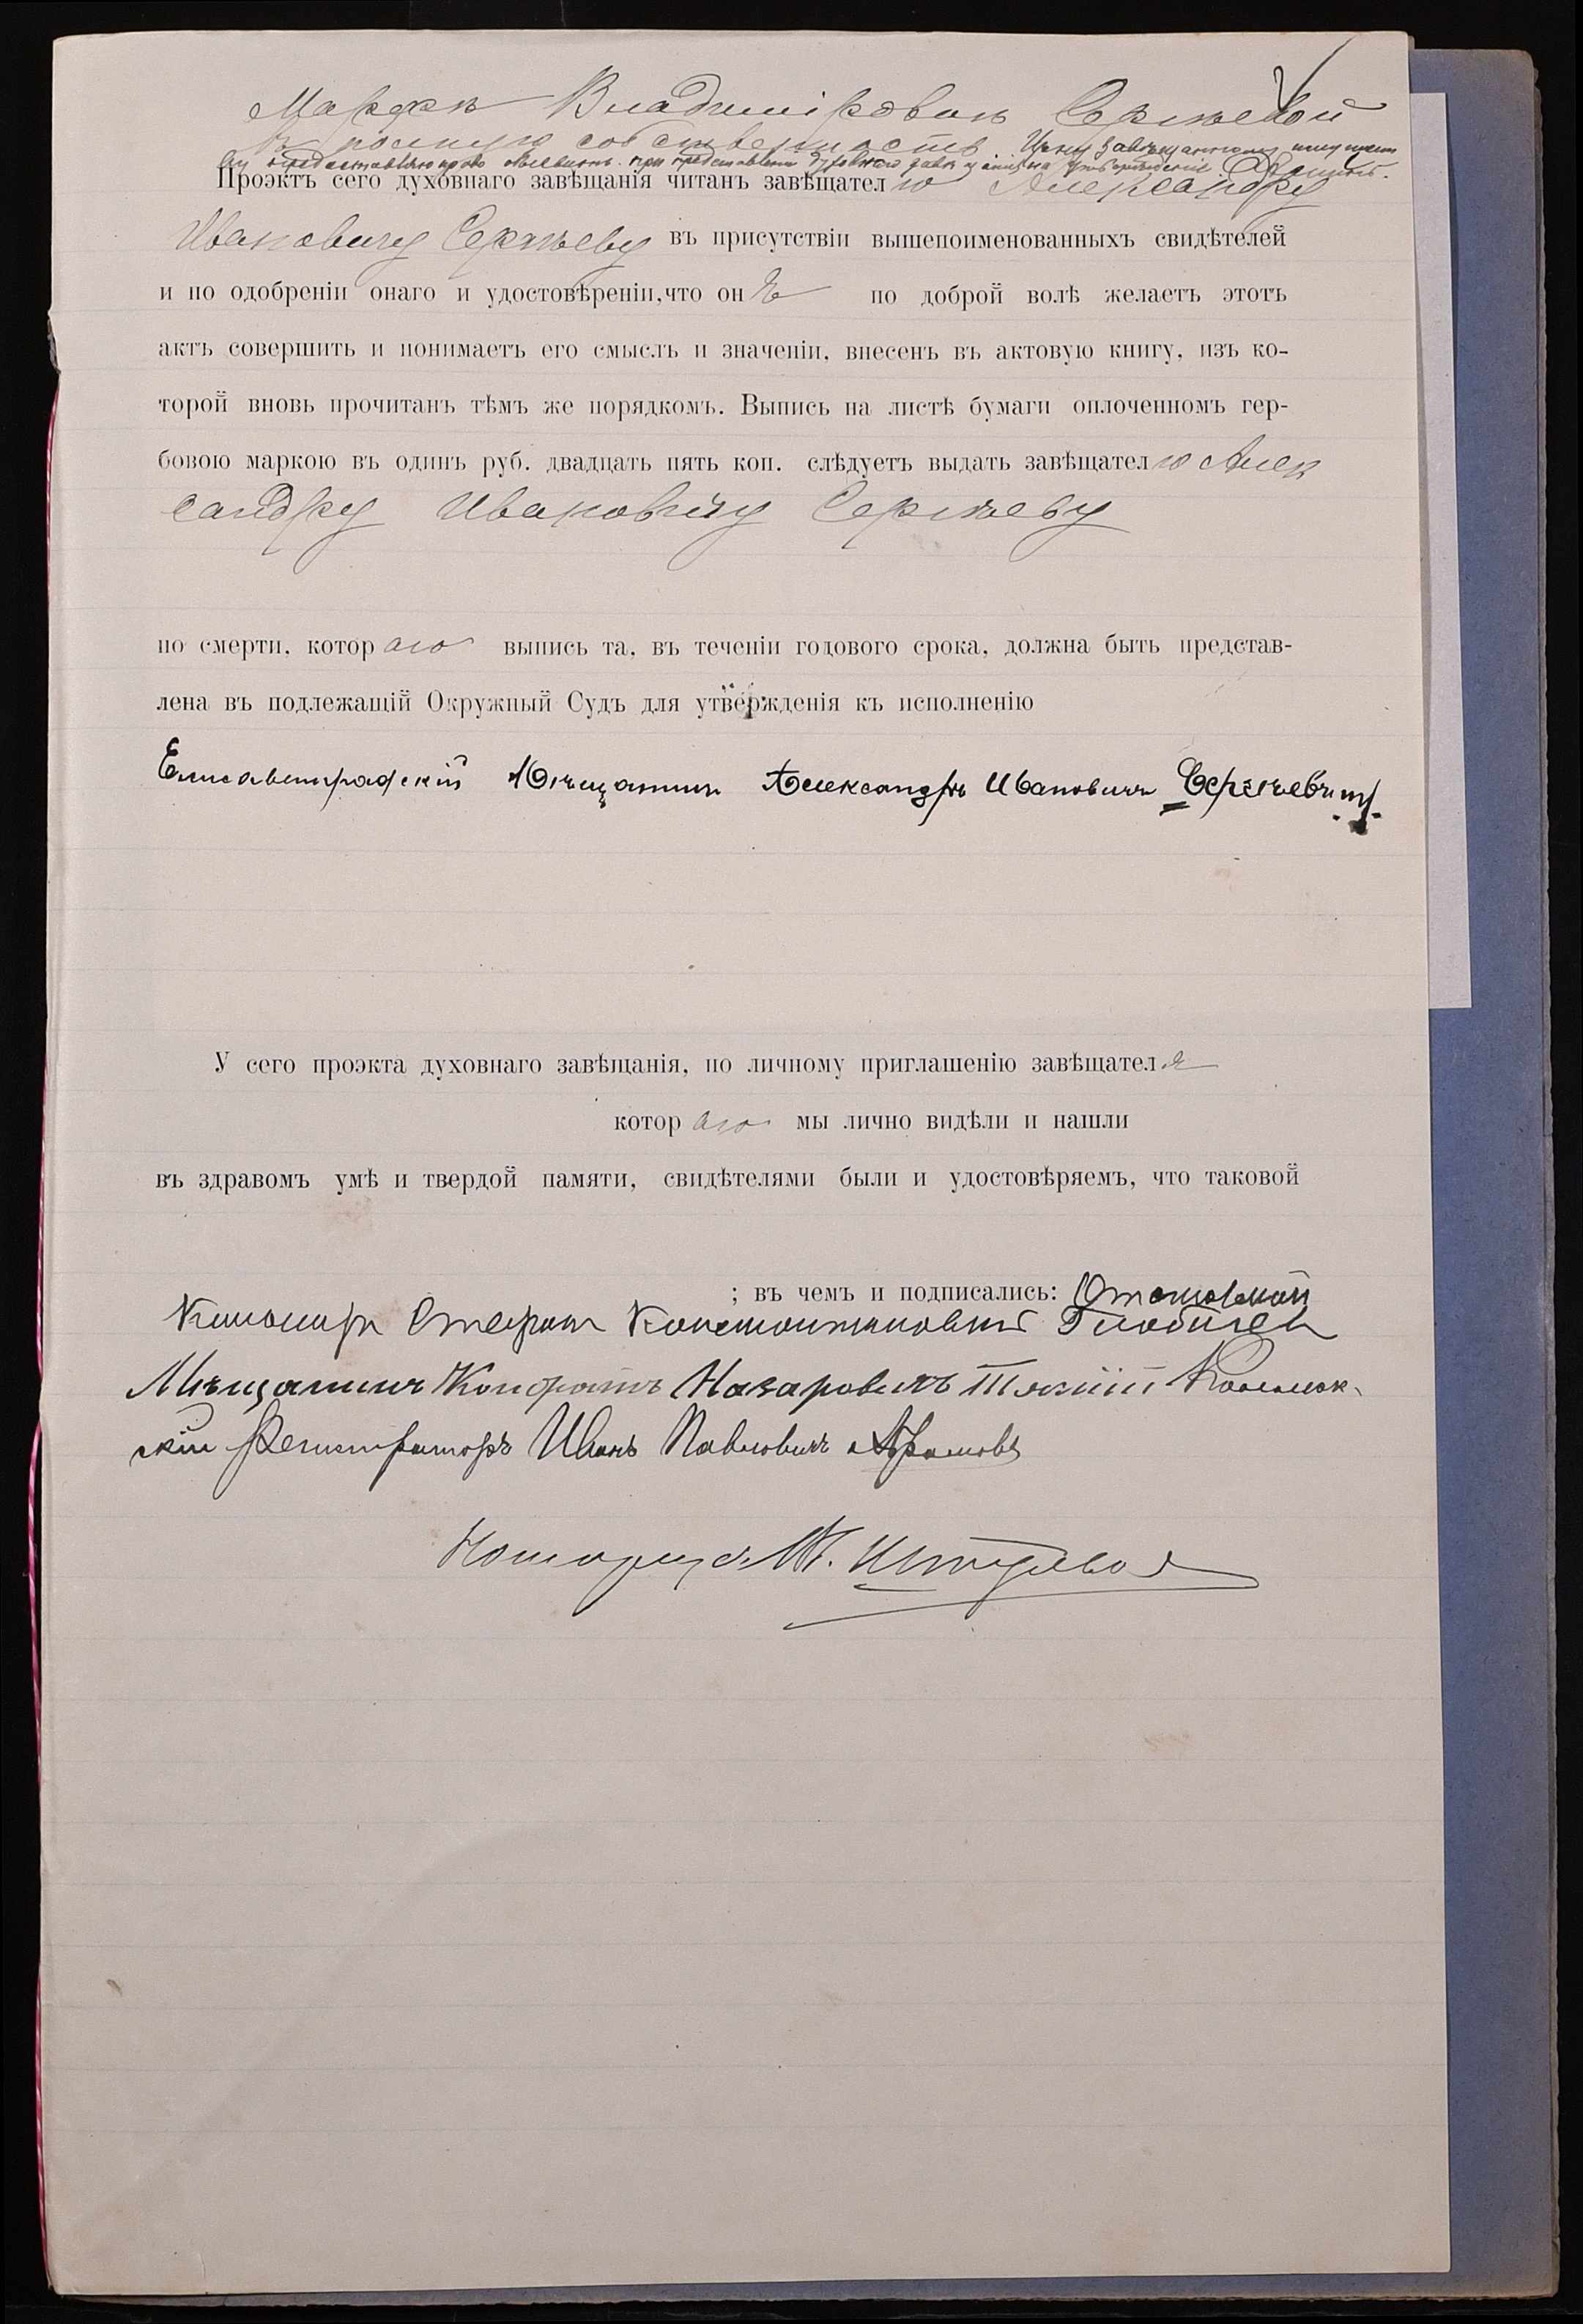 Марфѣ Владиміровнѣ Сергѣевой
въ полную собственность. Цѣну завѣщанному имущест
ву предоставляю право объявить при представленіи духовнаго завѣщанія на утвержденіе
Проэктъ сего духовнаго завѣщанія читанъ завѣщателю Александру
Ивановичу Сергѣеву въ присутствіи вышепоименованныхъ свидѣтелей
и по одобреніи онаго и удостовѣреніи, что онъ по доброй волѣ желаетъ этотъ
актъ совершить и понимаетъ его смыслъ и значеніи, внесенъ въ актовую книгу, изъ ко-
торой вновь прочитанъ тѣмъ же порядкомъ. Выпись на листѣ бумаги оплоченномъ гер-
бовою маркою въ одинъ руб. двадцать пять коп. слѣдуетъ выдать завѣщателю Алек
сандру Ивановичу Сергѣеву
по смерти, котораго выпись та, въ теченіи годового срока, должна быть представ-
лена въ подлежащій Окружный Судъ для утвержденія къ исполненію
Елисаветградскій Мѣщанинъ Александръ Ивановичъ Сергѣевъ
У сего проэкта духовнаго завѣщанія, по личному приглашенію завѣщателя
котораго мы лично видѣли и нашли
въ здравомъ умѣ и твердой памяти, свидѣтелями были и удостовѣряемъ, что таковой
; въ чемъ и подписались: Отставной
Стефанъ Константиновичъ
Мѣщанинъ Кондратъ Назаровичъ Коллежс-
кій Регистраторъ Иванъ Павловичъ Абрамовъ
Нотаріусъ